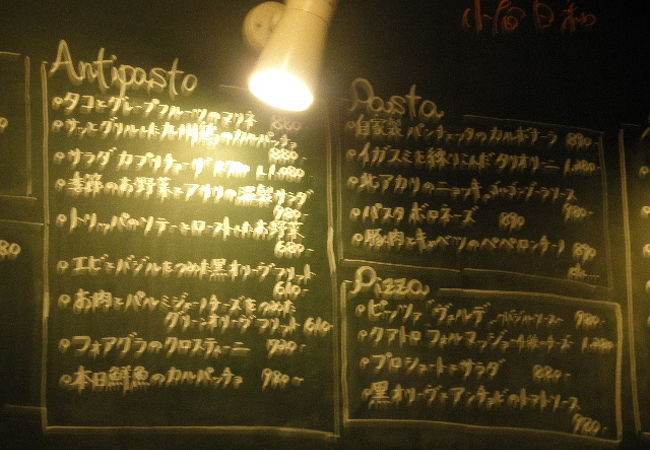 Antipasto
タコとグレープフルーツのマリネ 880-
サッとグリルした九州鶏のカルパッチョ
880-
サラダ カプリチョーザ 1,080-
季節のお野菜とアサリの温製サラダ
980-
トリッパのソテーとローストしたお野菜
680-
エビとバジルをつめた黒オリーヴフリット
610-
お肉とパルミジャーノチーズをつめた
グリーンオリーヴフリット 610-
フォアグラのクロスティーニ 930-
本日鮮魚のカルパッチョ 980-
Pasta
自家製 パンチェッタのカルボナーラ 890-
イガスミを練りこんだタリオリーニ
北アカリのニョッキ
980-
パスタ ボロネーズ 890
豚肉とキャベツのペペロンチーノ 890
etc....
Pizza
ピッツァ ヴェルデ 980-
クアトロ フォルマッジョ
プロシュートとサラダ 880-
黒オリーヴとアンチョビのトマトソース
980-
80